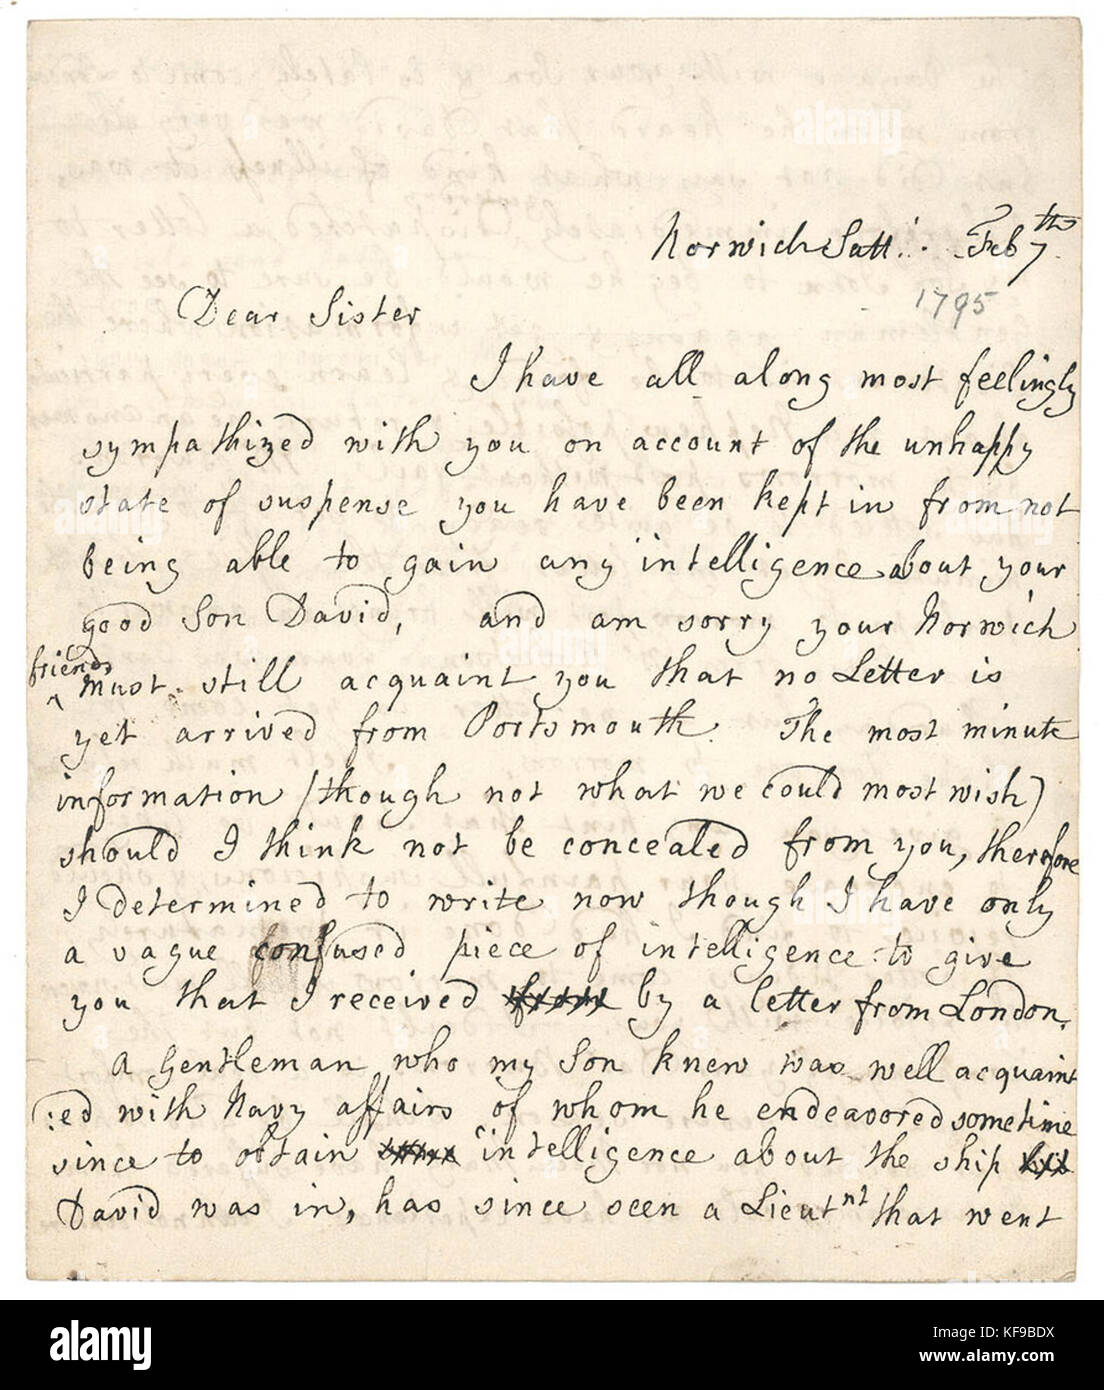 Norwich Satt. Feb 7th
1795
Dear Sister
I have all along most feelingly
sympathized with you on account of the unhappy
state of suspense you have been kept in from not
being able to gain any intelligence about your
good Son David, and am sorry your Norwich
friends
^ Must still acquaint you that no Letter is
yet arrived from Portsmouth. The most minute
information (though not what we could most wish)
should I think not be concealed from you, therefore
I determined to write now though I have only
a vague confused piece of intelligence to give
you that I received from by a letter from London.
A Gentleman who my Son knew was well acquaint
:ed with Navy affairs of whom he endeavored sometime
since to obtain intelligence about the ship
David was in, has since seen a Lieutnt that went
alamy
Image ID: KF9BDX
www.alamy.com